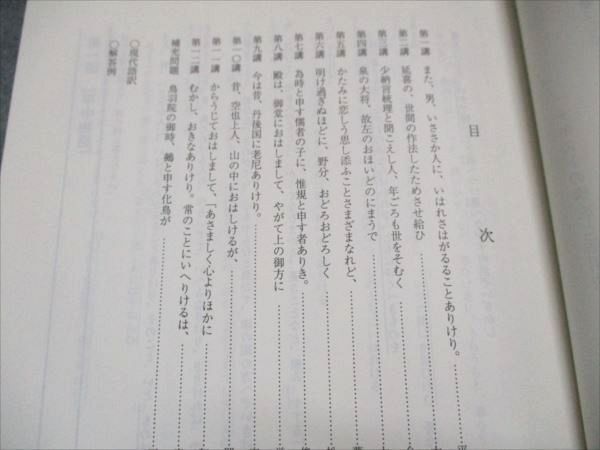 目次
第一講 また、男、いささか人に、いはれさはがるることありけり。
第二講 延喜の、世間の作法したためさせ給ひ
第三講 少納言統理と聞こえし人、年ごろも世をそむく
第四講 泉の大将、故左のおほいどのにまうで
第五講 かたみに恋しう思し添ふことさまざまなれど、
第六講 明け過ぎぬほどに、野分、おどろおどろしく
第七講 為時と申す儒者の子に、惟規と申す者ありき。
第八講 殿は、御堂におはしまして、やがて上の御方に
第九講 今は昔、丹後国に老尼ありけり。
第一〇講 昔、空也上人、山の中におはしけるが、
第一一講 からうじておはしまして、「あさましく心よりほかに
第一二講 むかし、おきなありけり。常のことにいへりけるは、
補充問題 鳥羽院の御時、鵺と申す化鳥が
〇現代語訳
〇解答例